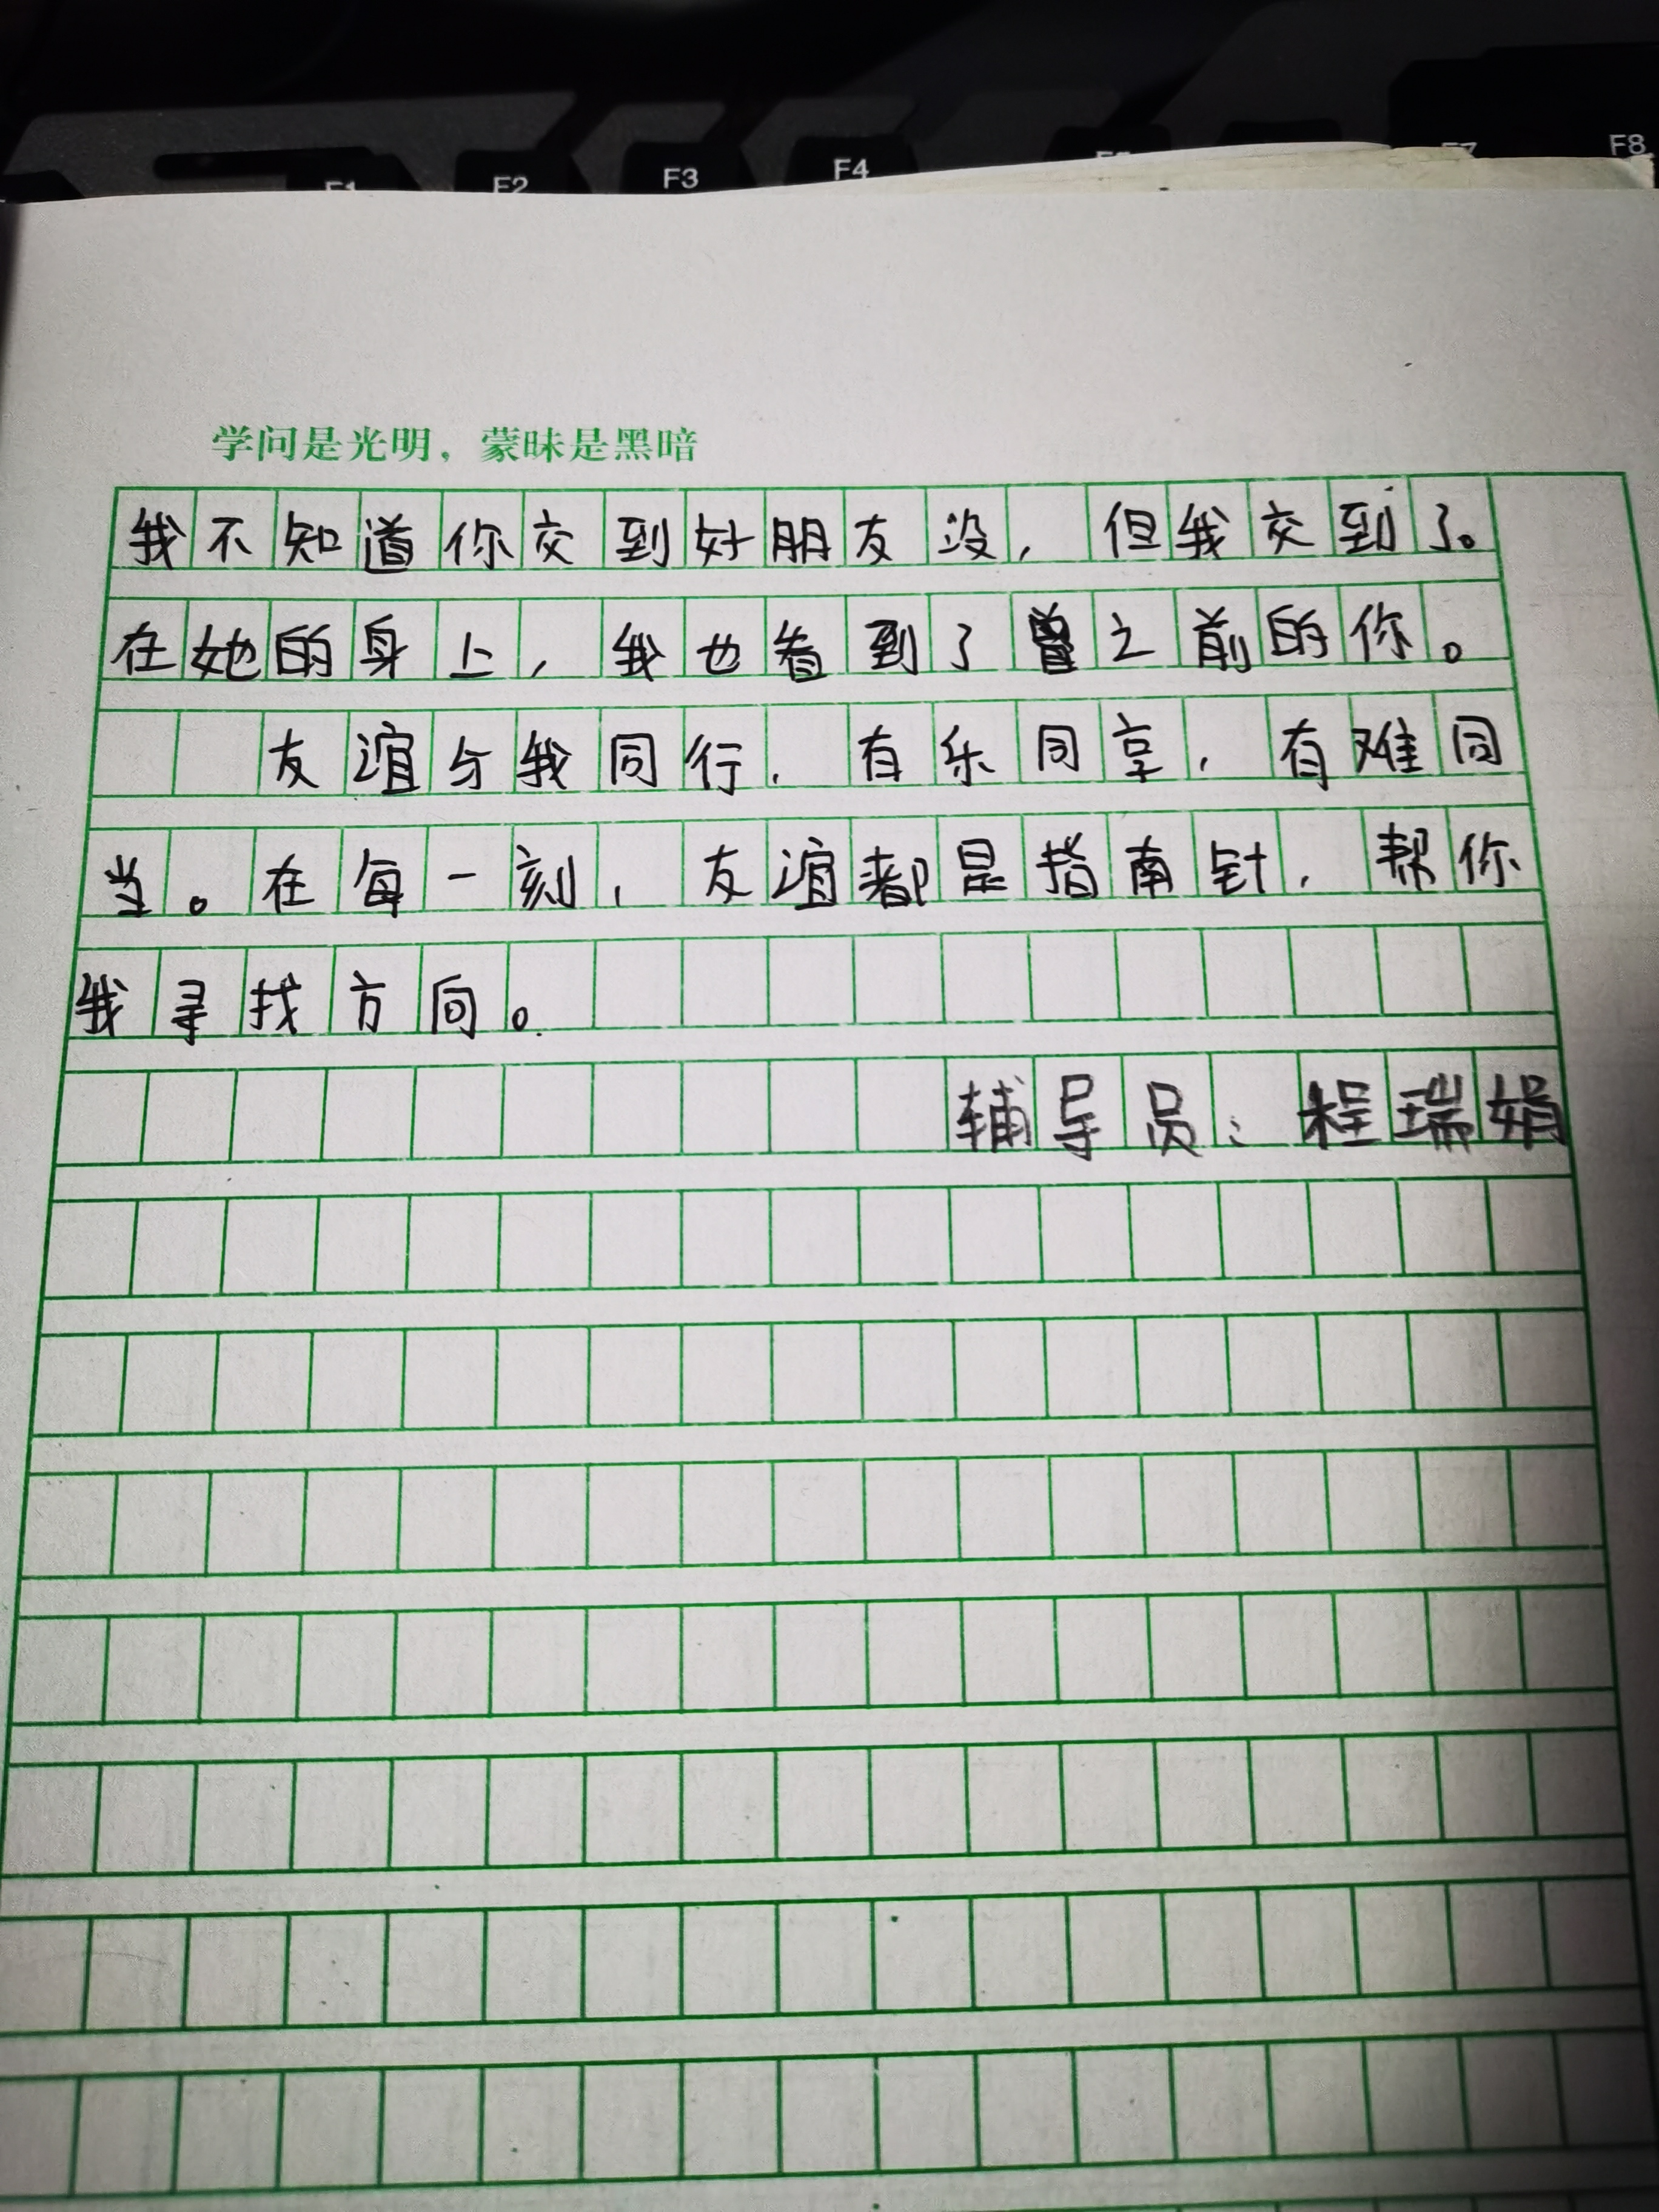 F1 F2 F3 F4 F7 F8
学问是光明，蒙昧是黑暗
我不知道你交到好朋友没，但我交到了。
在她的身上，我也看到了曾之前的你。
友谊与我同行，有乐同享，有难同
当。在每一刻，友谊都是指南针，帮你
我寻找方向。
辅导员：程瑞娟